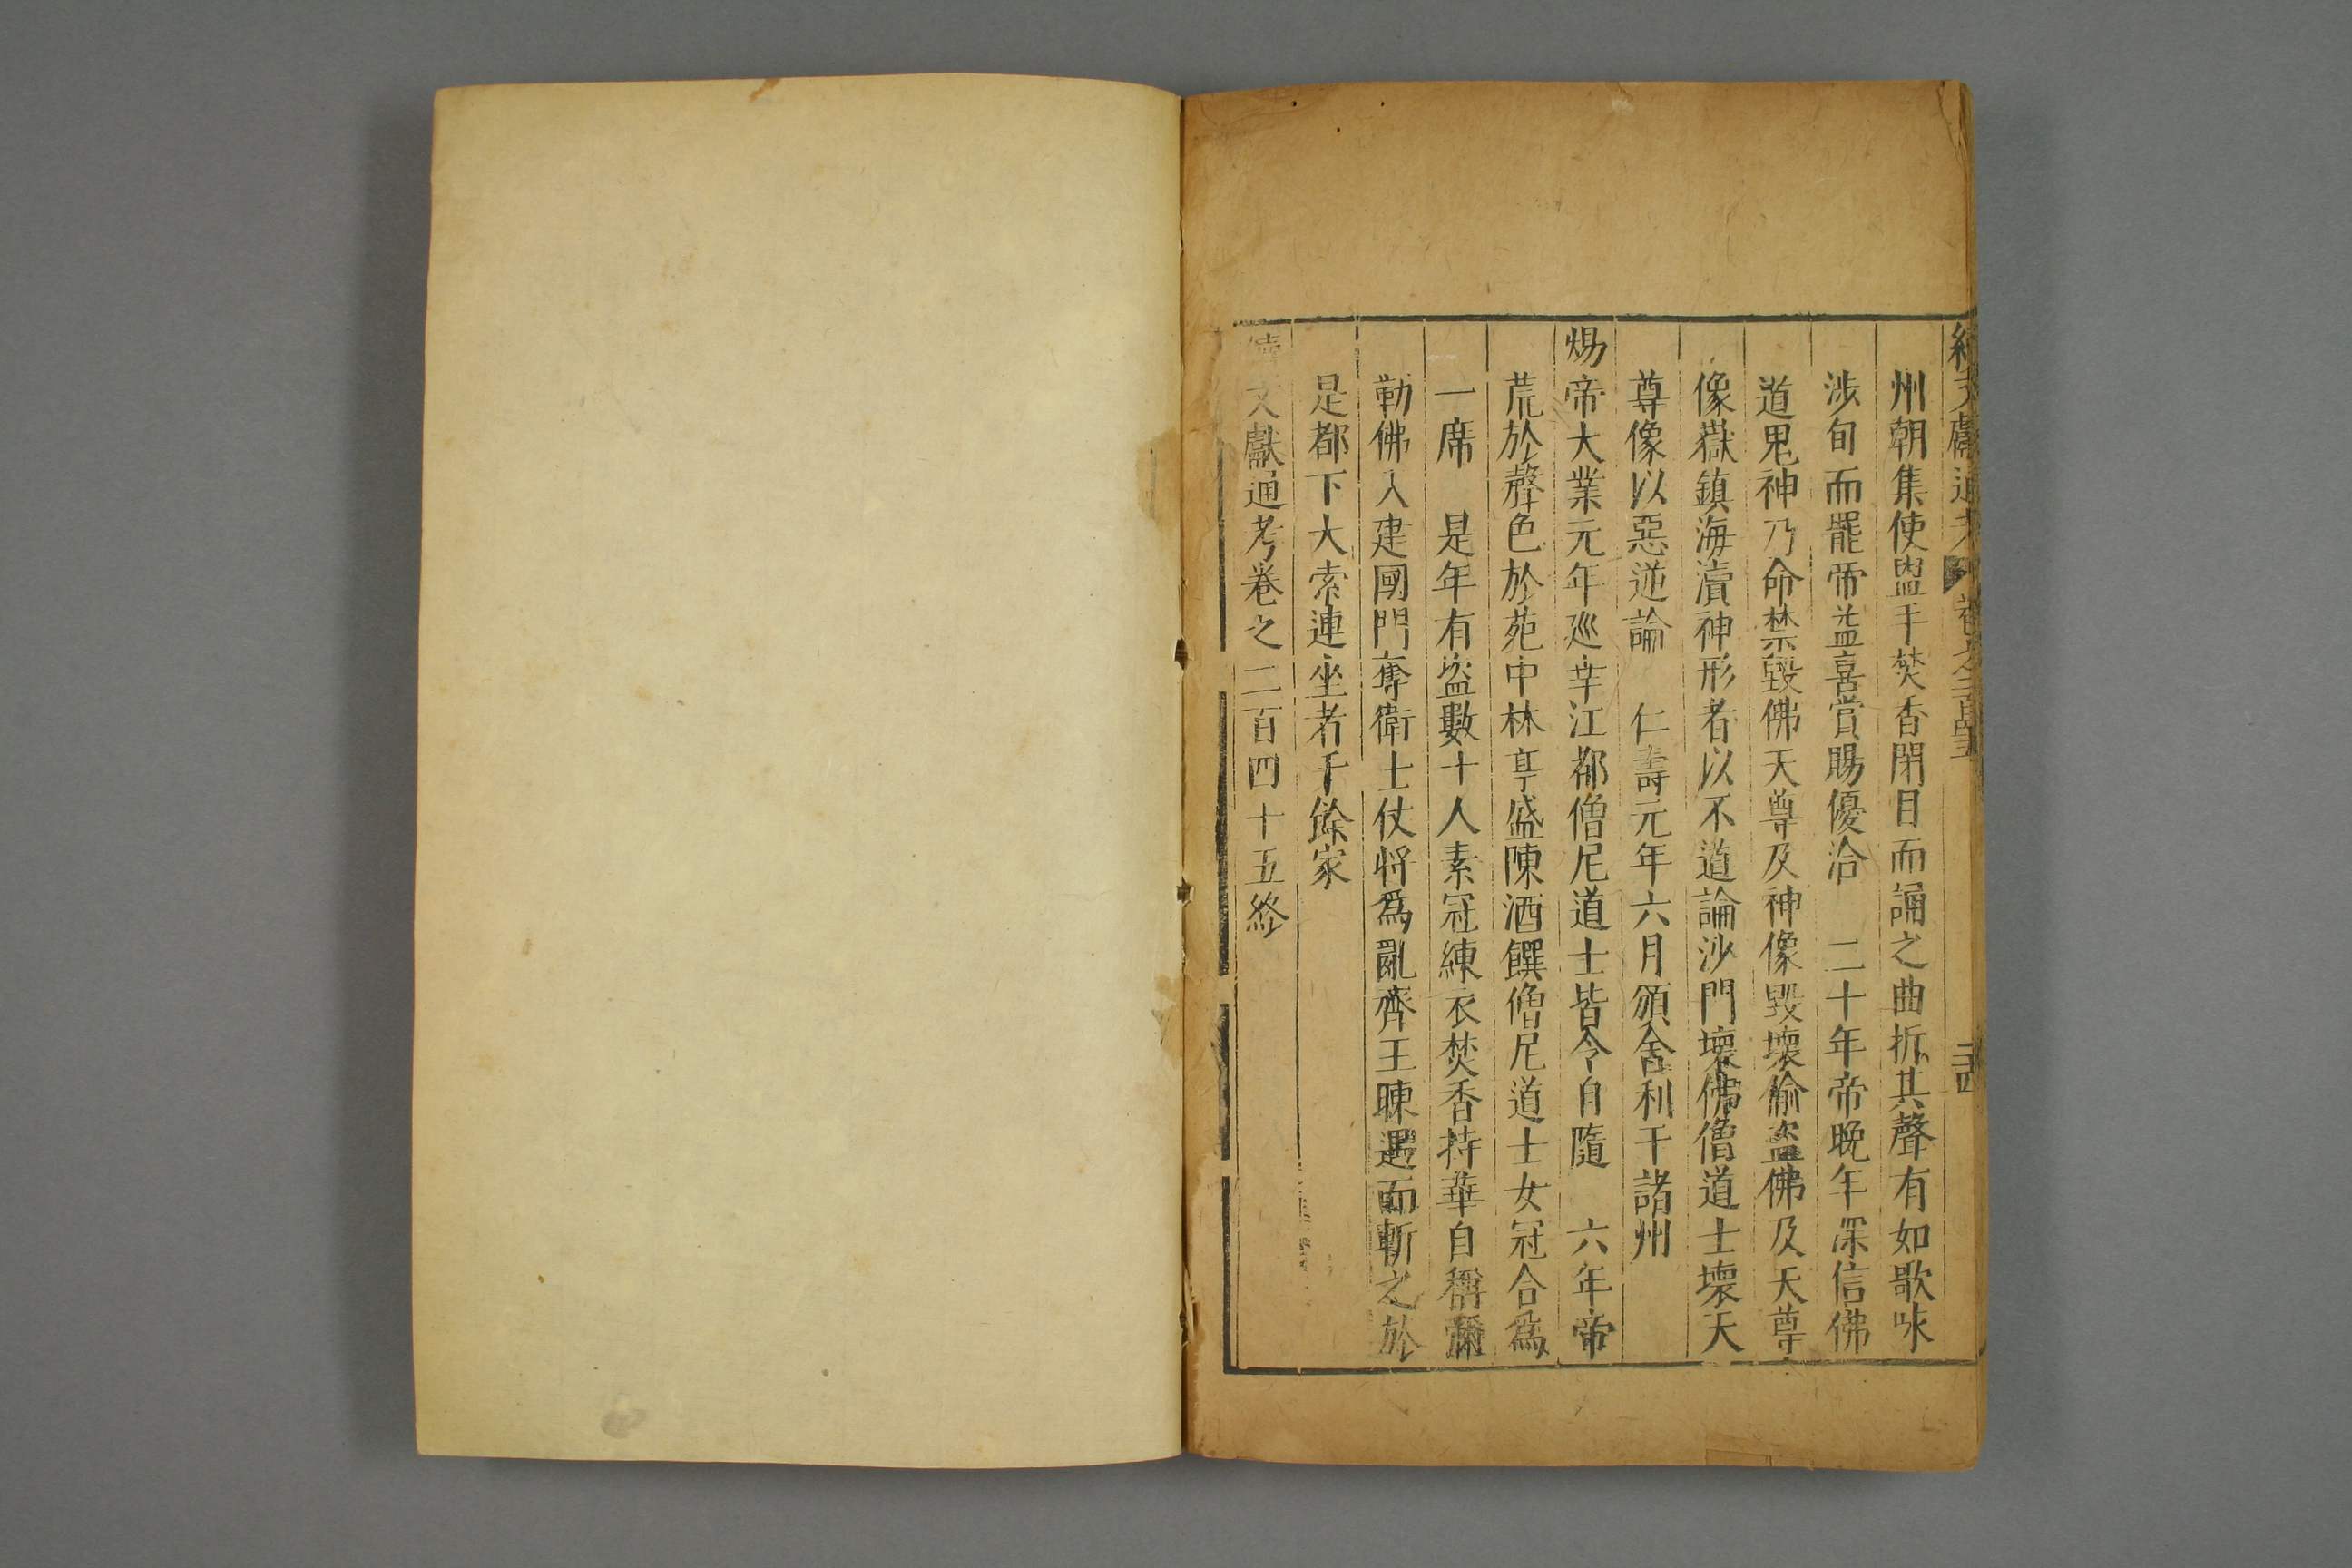 文獻通考 卷之二百四十五 二十四
州朝集使盥手焚香閉目而誦之曲折其聲有如歌咏
涉旬而罷帝益喜賞賜優洽 二十年帝晚年深信佛
道鬼神乃命禁毀佛天尊及神像毀壞偷盗佛及天尊
像嶽鎮海瀆神形者以不道論沙門壞佛僧道士壞天
尊像以惡逆論 仁壽元年六月頒舍利于諸州
煬帝大業元年廵幸江都僧尼道士皆令自隨 六年帝
荒於聲色於苑中林亭盛陳酒饌僧尼道士女冠合爲
一席 是年有盗數十人素冠練衣焚香持華自稱彌
勒佛入建國門奪衛士仗将爲亂齊王暕遇而斬之於
是都下大索連坐者千餘家
續文獻通考卷之二百四十五終